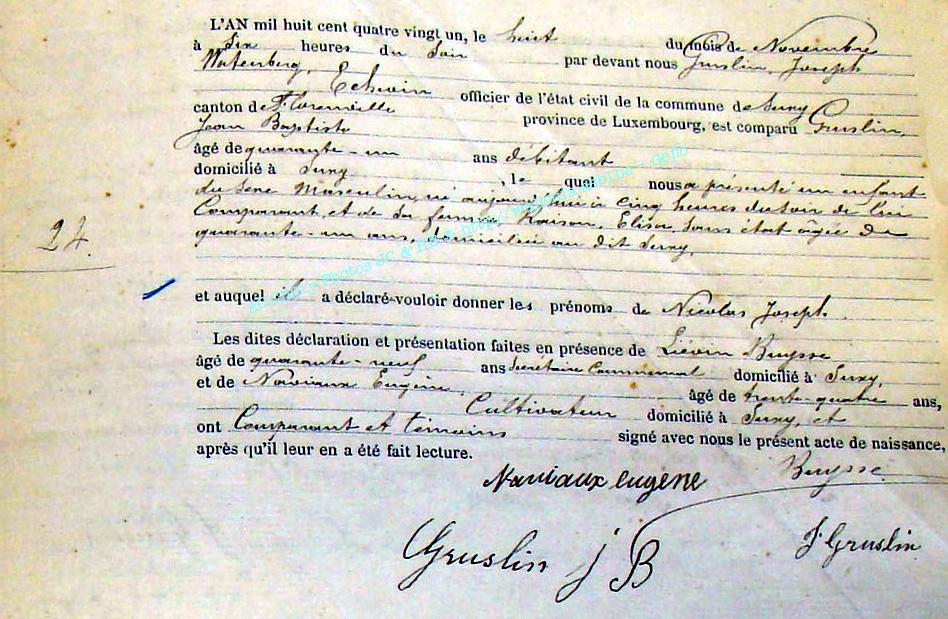 L'AN mil huit cent quatre vingt un, le huit du mois de Novembre
à Six heures du Soir par devant nous Gruslin, Joseph
Echevin officier de l'état civil de la commune de Suxy
canton de Florenville province de Luxembourg, est comparu Gruslin,
Jean Baptiste
âgé de quarante-un ans débitant
domicilié à Suxy, le quel nous a présenté un enfant
du sexe Masculin, né aujourd'hui à cinq heures du soir de lui
Comparant, et de sa femme Raison, Elisa, sans état âgée de
quarante-un ans, domiciliée au dit Suxy,
24.
et auquel il a déclaré vouloir donner les prénoms de Nicolas Joseph
Les dites déclaration et présentation faites en présence de Liévin Buysse
âgé de quarante-neuf ans Secrétaire Communal domicilié à Suxy,
et de Naviaux Eugène, âgé de trente-quatre ans,
Cultivateur domicilié à Suxy, et
ont Comparant et témoins signé avec nous le présent acte de naissance,
après qu'il leur en a été fait lecture.
Naviaux eugene Buysse
Gruslin J B J Gruslin